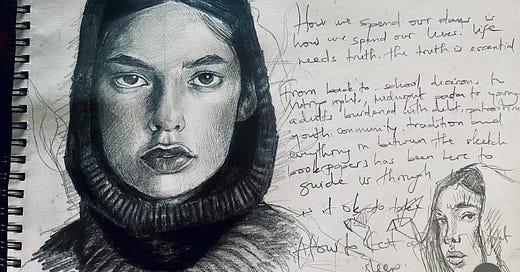 How we spend our days is
how we spend our lives. life
needs truth. the truth is essential
From back to school decisions to
voting rights, indulgent to young
adults burdened with debt,
youth community tradition and
everything in between the sketch
book papers has been here to
guide us through
is it ok to
How to
deep